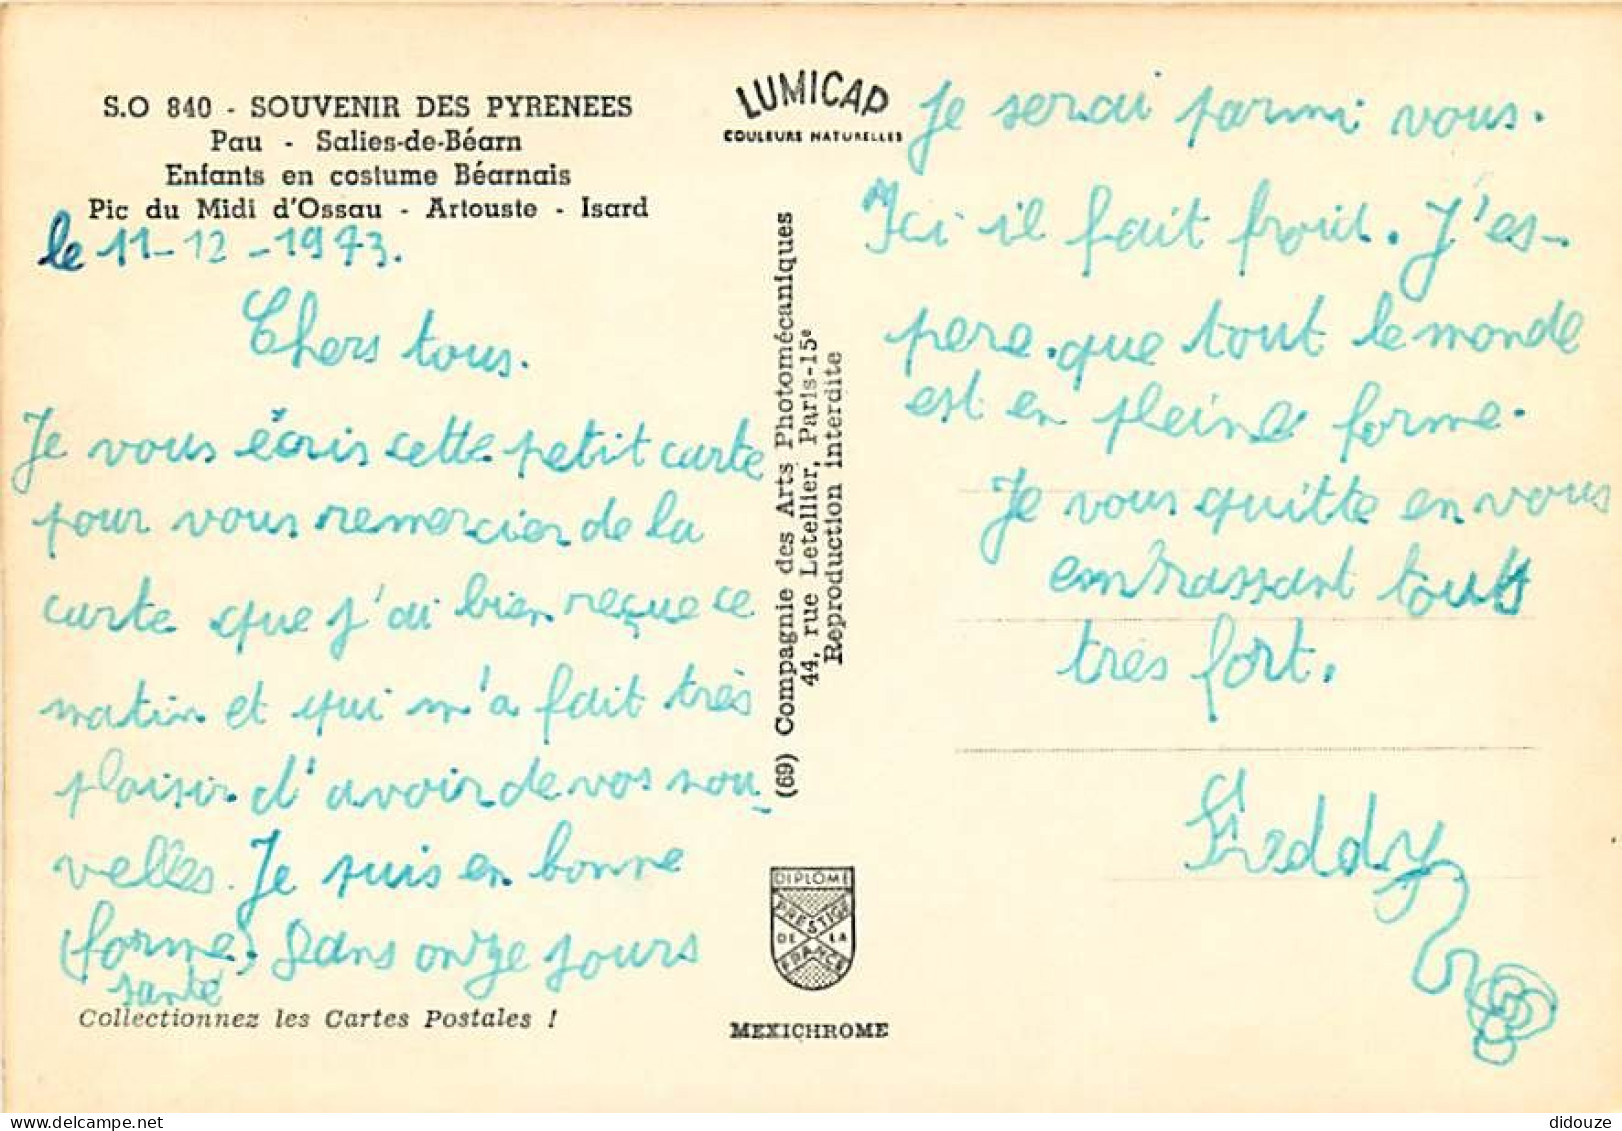 S.O 840 - SOUVENIR DES PYRENEES
Pau - Salies-de-Béarn
Enfants en costume Béarnais
Pic du Midi d'Ossau - Artouste - Isard
le 11-12-1973.
Chers tous.
Je vous écris cette petit carte
pour vous remercier de la
carte que j'ai bien reçue ce
matin et qui m'a fait très
plaisir d'avoir de vos nou-
velles. Je suis en bonne
(forme). Dans onze jours
santé
Collectionnez les Cartes Postales !
LUMICAP
COULEURS NATURELLES
(69) Compagnie des Arts Photomécaniques
44, rue Letellier, Paris-15e
Reproduction interdite
DIPLOME
PRESTIGE
DE LA
FRANCE
MEXICHROME
Je serai parmi vous.
Ici il fait froid. J'es-
pere que tout le monde
est en pleine forme.
Je vous quitte en vous
embrassant tous
très fort.
Freddy
didouze